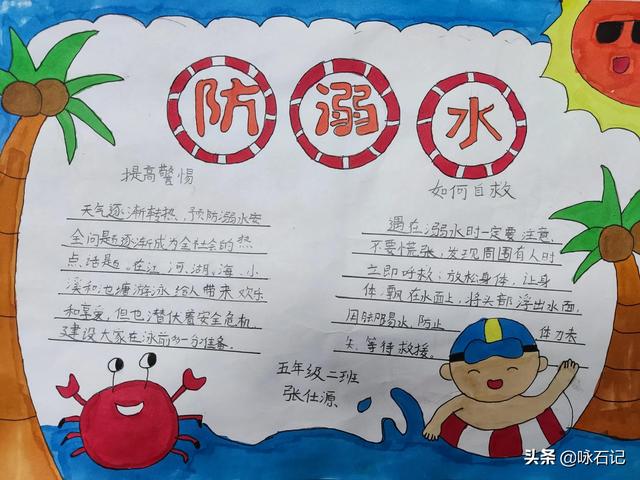 防溺水
提高警惕
天气逐渐转热,预防溺水安
全问题逐渐成为全社会的热
点话题。在江、河、湖、海、小
溪和池塘游泳给人带来欢乐
和享受,但也潜伏着安全危机
建设大家在泳前多一分准备。
如何自救
遇在溺水时一定要注意,
不要慌张,发现周围有人时
立即呼救:放松身体,让身
体飘在水面上,将头部浮出水面,
用脚踢水,防止 体力丧
失,等待救援。
五年级二班
张仕源
头条 @咏石记